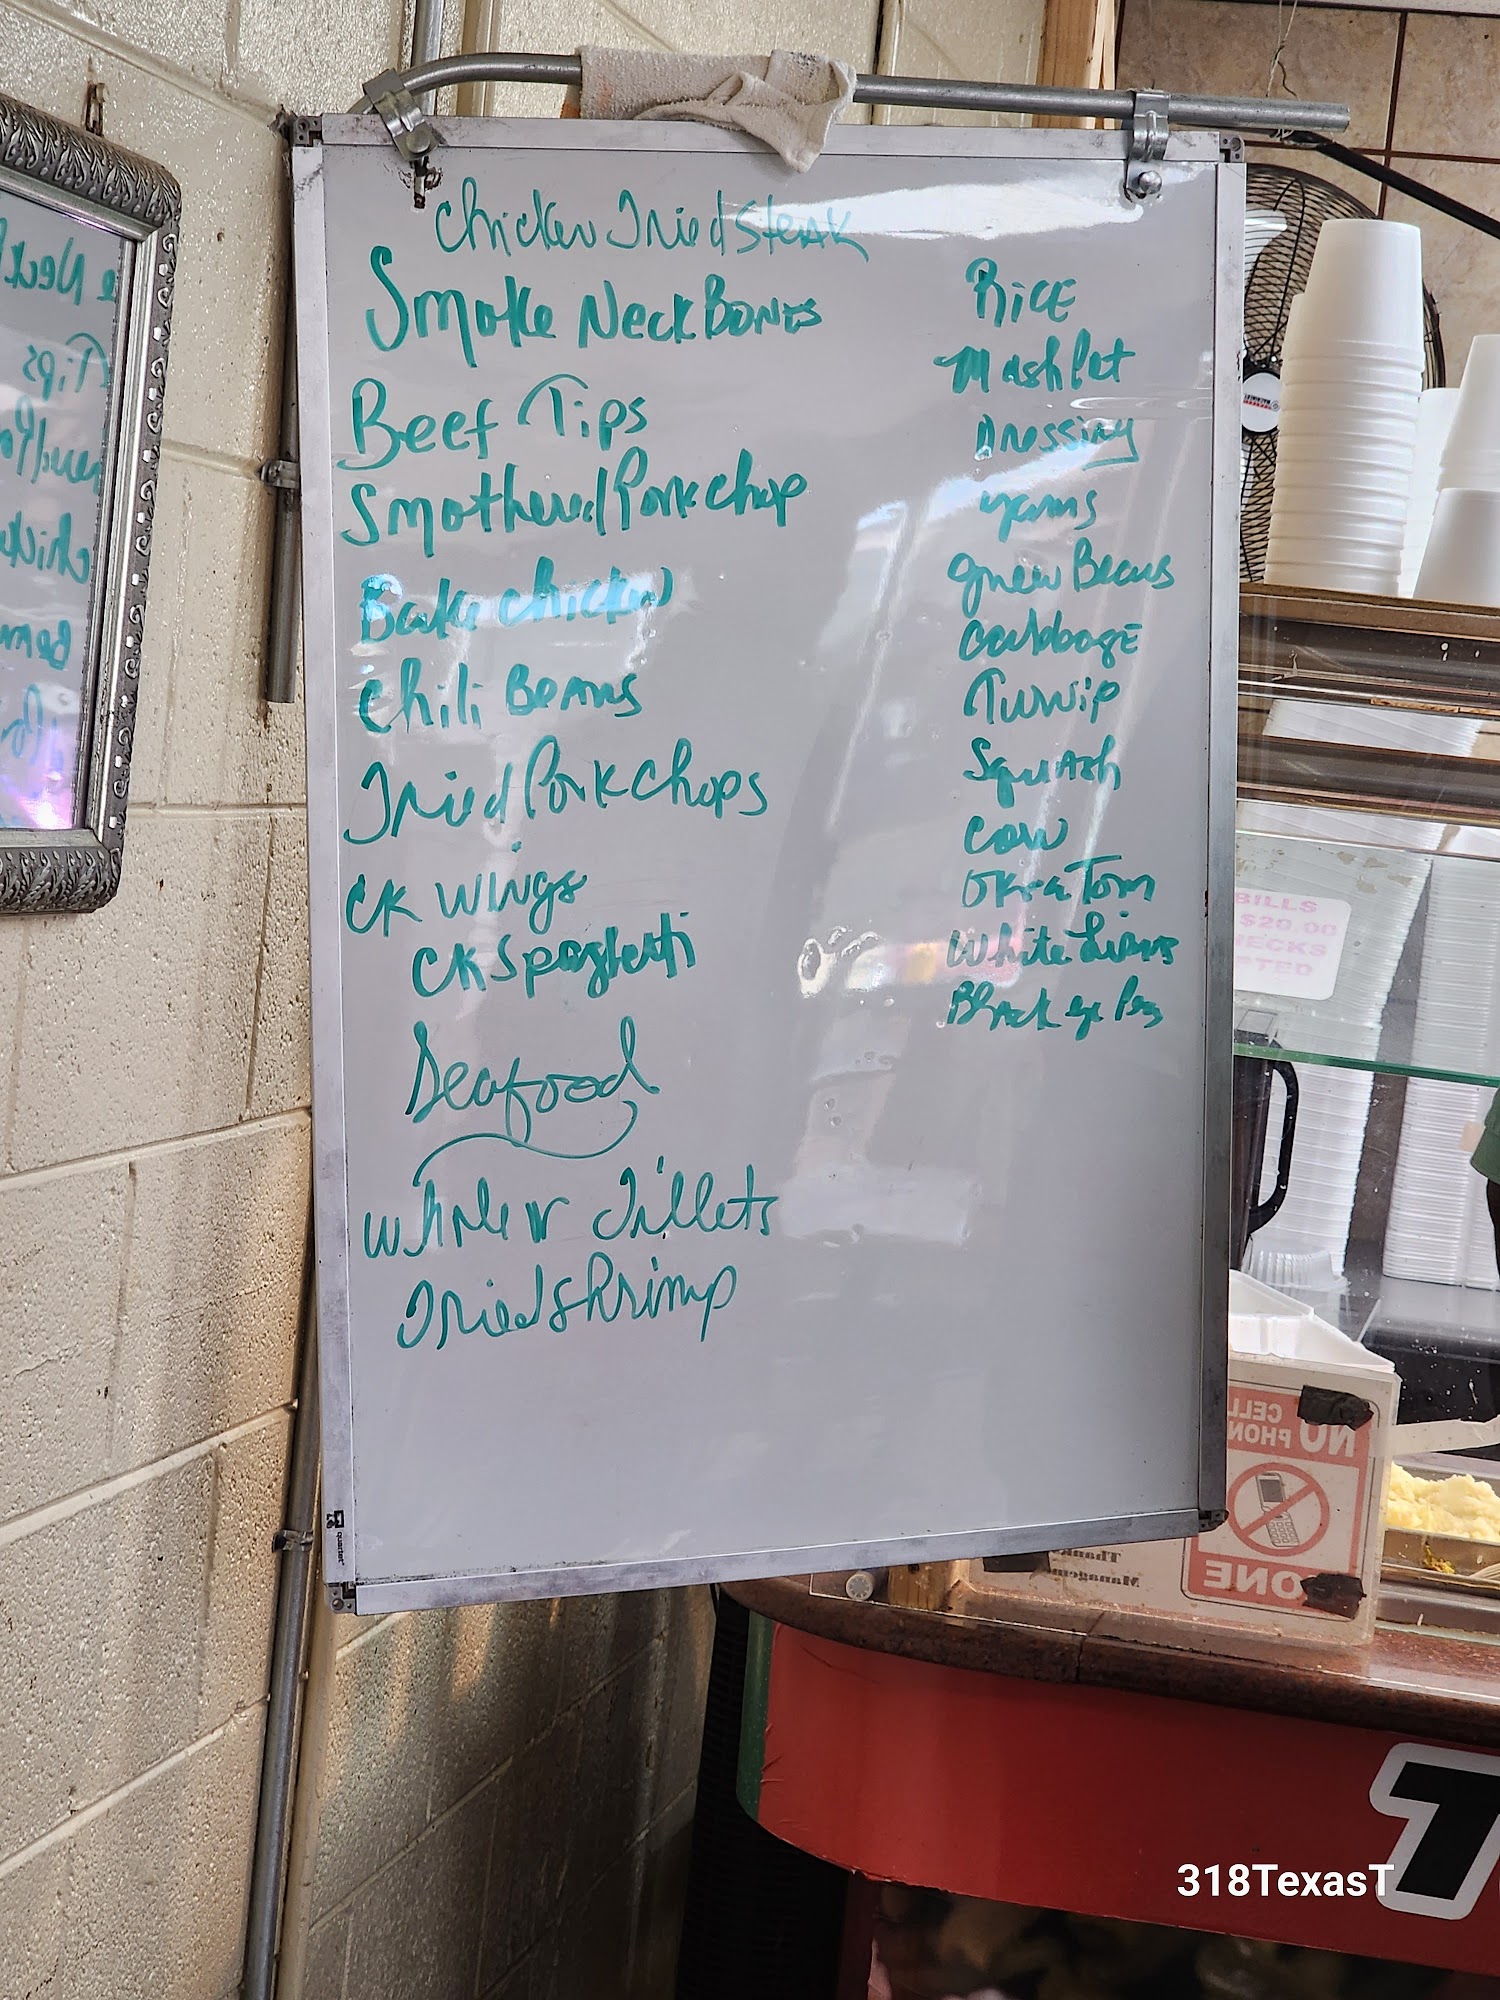 Chicken Fried Steak
Smoke Neck Bones
Beef Tips
Smothered Pork chop
Bake chicken
Chili Beans
Fried Pork Chops
CK Wings
CK Spaghetti
Seafood
Whole N Fillets
Fried shrimp
Rice
Mash Pot
Dressing
yams
green Beans
cabbage
Turnip
Squash
Corn
Okra Tom
White Limas
Black eye Peas
BILLS
$20.00
quartet
NO
CELL
PHONE
Management
318TexasT